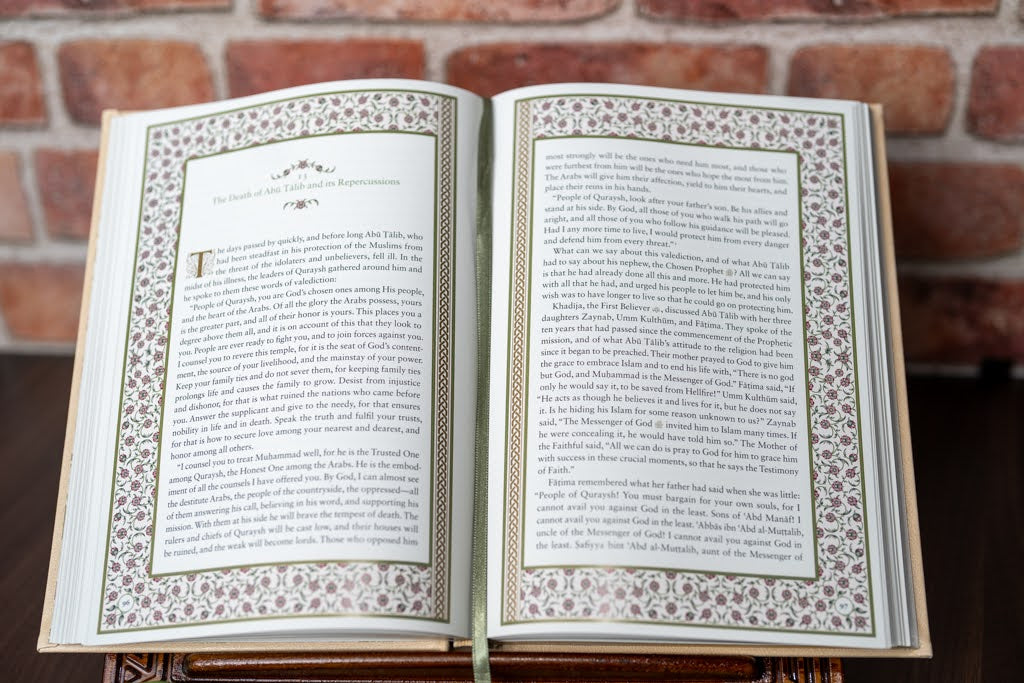 13
The Death of Abū Ṭālib and its Repercussions
The days passed by quickly, and before long Abū Ṭālib, who
had been steadfast in his protection of the Muslims from
the threat of the idolaters and unbelievers, fell ill. In the
midst of his illness, the leaders of Quraysh gathered around him and
he spoke to them these words of valediction:
“People of Quraysh, you are God’s chosen ones among His people,
and the heart of the Arabs. Of all the glory the Arabs possess, yours
is the greater part, and all of their honor is yours. This places you a
degree above them all, and it is on account of this that they look to
you. People are ever ready to fight you, and to join forces against you.
I counsel you to revere this temple, for it is the seat of God’s content-
ment, the source of your livelihood, and the mainstay of your power.
Keep your family ties and do not sever them, for keeping family ties
prolongs life and causes the family to grow. Desist from injustice
and dishonor, for that is what ruined the nations who came before
you. Answer the supplicant and give to the needy, for that ensures
nobility in life and in death. Speak the truth and fulfil your trusts,
for that is how to secure love among your nearest and dearest, and
honor among all others.
“I counsel you to treat Muḥammad well, for he is the Trusted One
among Quraysh, the Honest One among the Arabs. He is the embod-
iment of all the counsels I have offered you. By God, I can almost see
the destitute Arabs, the people of the countryside, the oppressed—all
of them answering his call, believing in his word, and supporting his
mission. With them at his side he will brave the tempest of death. The
rulers and chiefs of Quraysh will be cast low, and their houses will
be ruined, and the weak will become lords. Those who opposed him
96
most strongly will be the ones who need him most, and those who
were furthest from him will be the ones who hope the most from him.
The Arabs will give him their affection, yield to him their hearts, and
place their reins in his hands.
“People of Quraysh, look after your father’s son. Be his allies and
stand at his side. By God, all those of you who walk his path will go
aright, and all those of you who follow his guidance will be pleased.
Had I any more time to live, I would protect him from every danger
and defend him from every threat.”¹
What can we say about this valediction, and of what Abū Ṭālib
had to say about his nephew, the Chosen Prophet ﷺ? All we can say
is that he had already done all this and more. He had protected him
with all that he had, and urged his people to let him be, and his only
wish was to have longer to live so that he could go on protecting him.
Khadīja, the First Believer, discussed Abū Ṭālib with her three
daughters Zaynab, Umm Kulthūm, and Fāṭima. They spoke of the
ten years that had passed since the commencement of the Prophetic
mission, and of what Abū Ṭālib’s attitude to the religion had been
since it began to be preached. Their mother prayed to God to give him
the grace to embrace Islam and to end his life with, “There is no god
but God, and Muḥammad is the Messenger of God.” Fāṭima said, “If
only he would say it, to be saved from Hellfire!” Umm Kulthūm said,
“He acts as though he believes it and lives for it, but he does not say
it. Is he hiding his Islam for some reason unknown to us?” Zaynab
said, “The Messenger of God ﷺ invited him to Islam many times. If
he were concealing it, he would have told him so.” The Mother of
the Faithful said, “All we can do is pray to God for him to grace him
with success in these crucial moments, so that he says the Testimony
of Faith.”
Fāṭima remembered what her father had said when she was little:
“People of Quraysh! You must bargain for your own souls, for I
cannot avail you against God in the least. Sons of ʿAbd Manāf! I
cannot avail you against God in the least. ʿAbbās ibn ʿAbd al-Muṭṭalib,
uncle of the Messenger of God! I cannot avail you against God in
the least. Ṣafiyya bint ʿAbd al-Muṭṭalib, aunt of the Messenger of
97